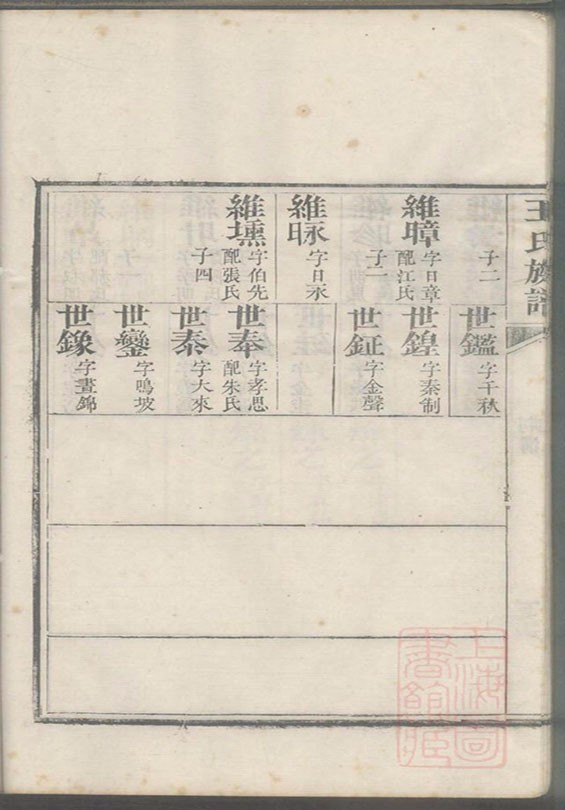 王氏族譜
子二
世鑑 字千秋
維暲 字日章 配江氏 子二
世鍠 字秦制
世鉦 字金聲
維昹 字日永
維壎 字伯先 配張氏 子四
世奉 字孝思 配朱氏
世泰 字大來
世鑾 字鳴坡
世𨰲 字晝錦
上海圖書館藏